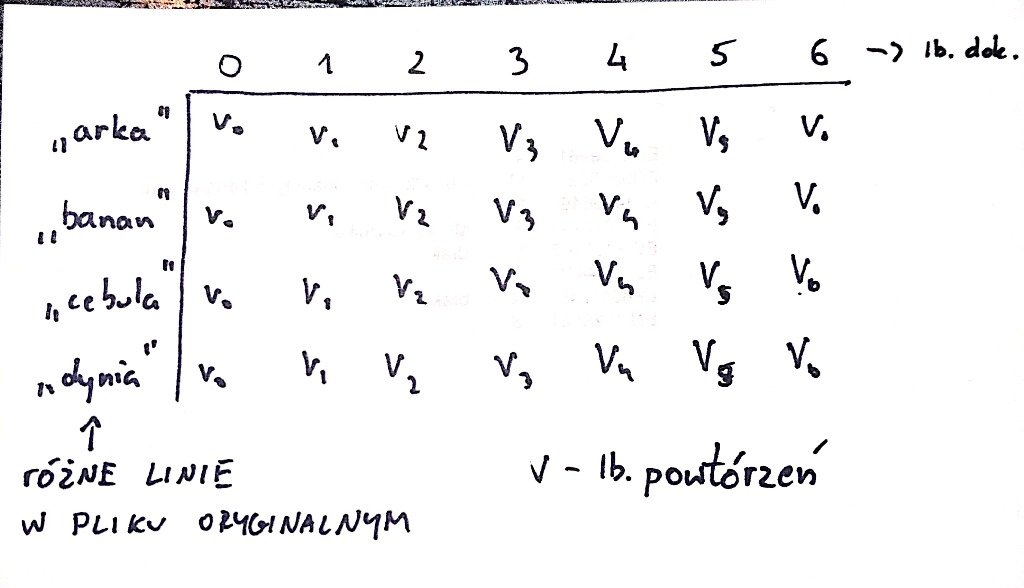 0 1 2 3 4 5 6 -> lb. dok.
„arka" V₀ V₁ V₂ V₃ V₄ V₅ V₆
„banan" V₀ V₁ V₂ V₃ V₄ V₅ V₆
„cebula" V₀ V₁ V₂ V₃ V₄ V₅ V₆
„dynia" V₀ V₁ V₂ V₃ V₄ V₅ V₆
↑
RÓŻNE LINIE
W PLIKU ORYGINALNYM
V - lb. powtórzeń